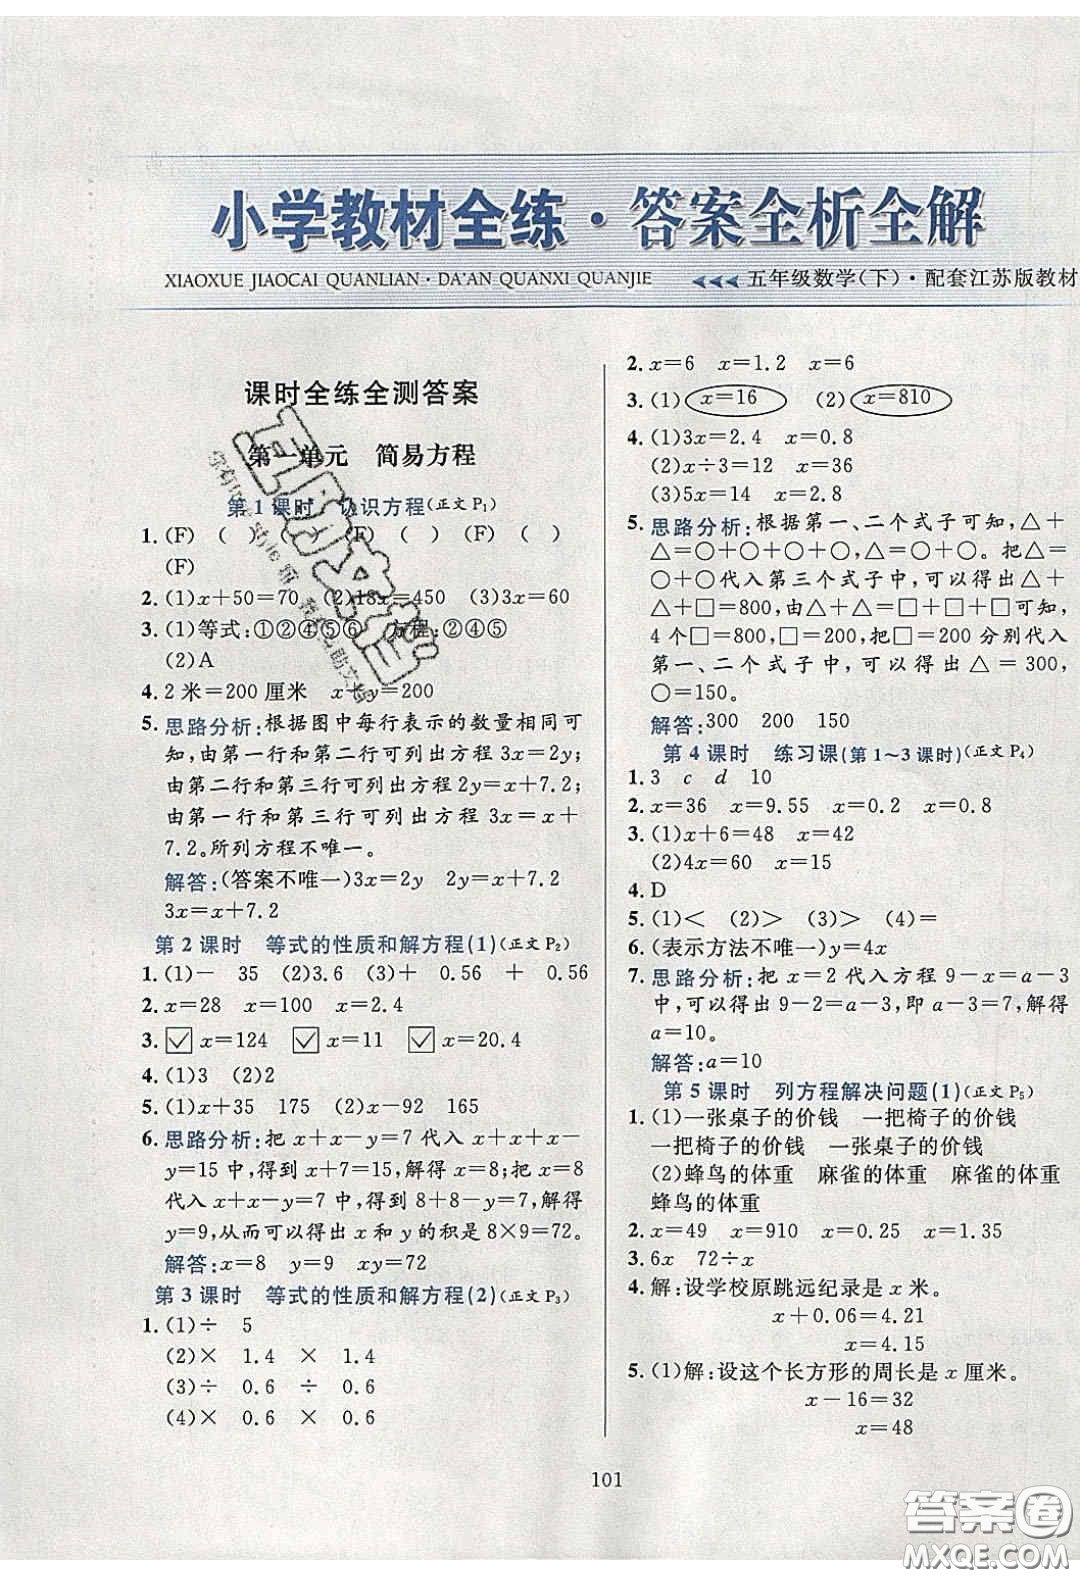 小学教材全练·答案全析全解
XIAOXUE JIAOCAI QUANLIAN·DA'AN QUANXI QUANJIE
五年级数学(下)·配套江苏版教材
课时全练全测答案
第一单元 简易方程
第1课时 认识方程(正文P₁)
1. (F) ( ) ( ) (F) ( ) (F) ( )
(F)
2. (1)x+50=70 (2)18x=450 (3)3x=60
3. (1)等式:①②④⑤⑥ 方程:②④⑤
(2)A
4. 2米=200厘米 x+y=200
5. 思路分析:根据图中每行表示的数量相同可
知,由第一行和第二行可列出方程3x=2y;
由第二行和第三行可列出方程2y=x+7.2;
由第一行和第三行可列出方程3x=x+
7.2。所列方程不唯一。
解答:(答案不唯一)3x=2y 2y=x+7.2
3x=x+7.2
第2课时 等式的性质和解方程(1)(正文P₂)
1. (1)- 35 (2)3.6 (3)+ 0.56 + 0.56
2. x=28 x=100 x=2.4
3. ☑ x=124 ☑ x=11 ☑ x=20.4
4. (1)3 (2)2
5. (1)x+35 175 (2)x-92 165
6. 思路分析:把x+x-y=7代入x+x+x-
y=15中,得到x+7=15,解得x=8;把x=8
代入x+x-y=7中,得到8+8-y=7,解得
y=9,从而可以得出x和y的积是8×9=72。
解答:x=8 y=9 xy=72
第3课时 等式的性质和解方程(2)(正文P₃)
1. (1)÷ 5
(2)× 1.4 × 1.4
(3)÷ 0.6 ÷ 0.6
(4)× 0.6 × 0.6
2. x=6 x=1.2 x=6
3. (1) x=16 (2) x=810
4. (1)3x=2.4 x=0.8
(2)x÷3=12 x=36
(3)5x=14 x=2.8
5. 思路分析:根据第一、二个式子可知,△+
△=○+○+○+○,△=○+○。把△=
○+○代入第三个式子中,可以得出△+
△+□=800,由△+△=□+□+□可知,
4个□=800,□=200,把□=200分别代入
第一、二个式子中,可以得出△=300,
○=150。
解答:300 200 150
第4课时 练习课(第1~3课时)(正文P₄)
1. 3 c d 10
2. x=36 x=9.55 x=0.2 x=0.8
3. (1)x+6=48 x=42
(2)4x=60 x=15
4. D
5. (1)< (2)> (3)> (4)=
6. (表示方法不唯一)y=4x
7. 思路分析:把x=2代入方程9-x=a-3
中,可以得出9-2=a-3,即a-3=7,解得
a=10。
解答:a=10
第5课时 列方程解决问题(1)(正文P₅)
1. (1)一张桌子的价钱 一把椅子的价钱
一把椅子的价钱 一张桌子的价钱
(2)蜂鸟的体重 麻雀的体重 麻雀的体重
蜂鸟的体重
2. x=49 x=910 x=0.25 x=1.35
3. 6x 72÷x
4. 解:设学校原跳远纪录是x米。
x+0.06=4.21
x=4.15
5. (1)解:设这个长方形的周长是x厘米。
x-16=32
x=48
101
答案圈
MXQE.COM